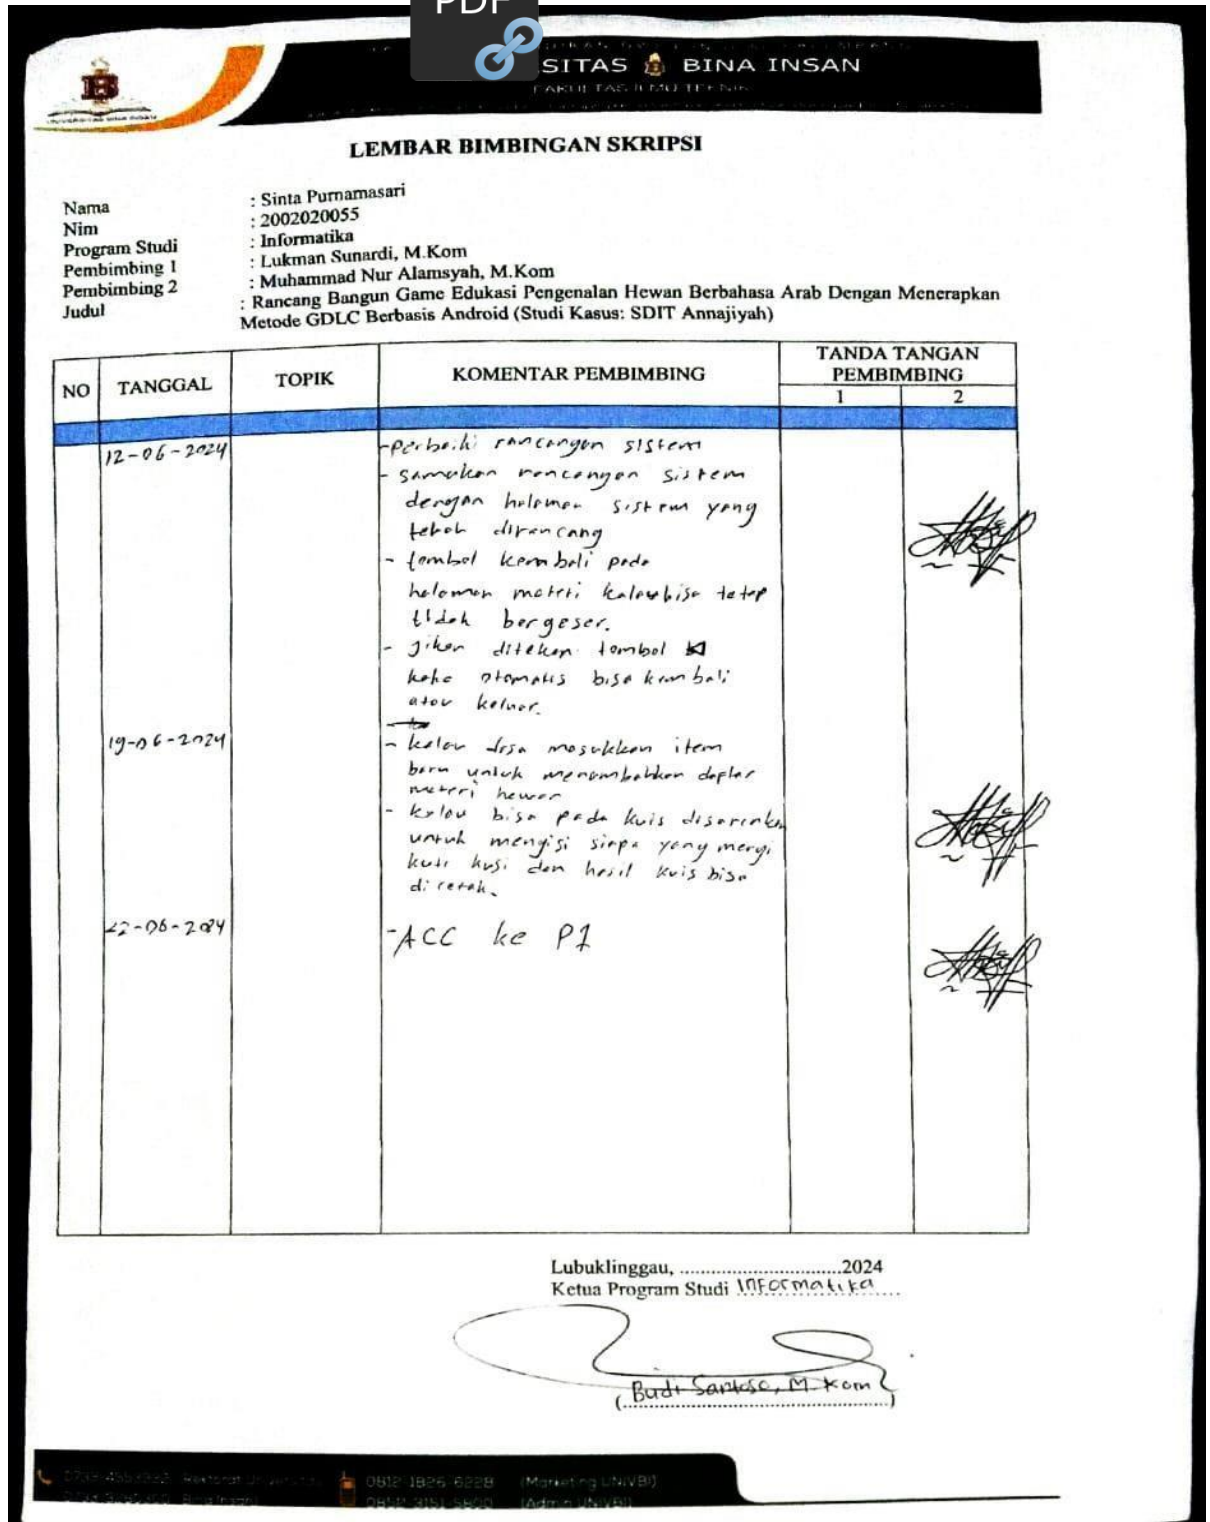 PDF
SITAS BINA INSAN
FAKULTAS ILMU TEKNIK
UNIVERSITAS BINA INSAN
LEMBAR BIMBINGAN SKRIPSI
Nama : Sinta Purnamasari
Nim : 2002020055
Program Studi : Informatika
Pembimbing 1 : Lukman Sunardi, M.Kom
Pembimbing 2 : Muhammad Nur Alamsyah, M.Kom
Judul : Rancang Bangun Game Edukasi Pengenalan Hewan Berbahasa Arab Dengan Menerapkan
Metode GDLC Berbasis Android (Studi Kasus: SDIT Annajiyah)
NO TANGGAL TOPIK KOMENTAR PEMBIMBING TANDA TANGAN PEMBIMBING
1 2
12-06-2024 - perbaiki rancangan sistem
- samakan rancangan sistem
dengan halaman sistem yang
telah dirancang
- tombol kembali pada
halaman materi kalau bisa tetap
tidak bergeser.
- jikan ditekan tombol
otomatis bisa kembali
atau keluar.
19-06-2024 - kalau bisa masukkan item
baru untuk menambahkan daftar
materi hewan
- kalau bisa pada kuis disarankan
untuk mengisi siapa yang
dan hasil kuis bisa
dicetak.
22-06-2024 - ACC ke P1
Lubuklinggau, ..............................2024
Ketua Program Studi Informatika
(Budi Santoso, M.Kom)
0812 1826 6228 (Marketing UNIVBI)
0852 3151 5800 (Admin UNIVBI)